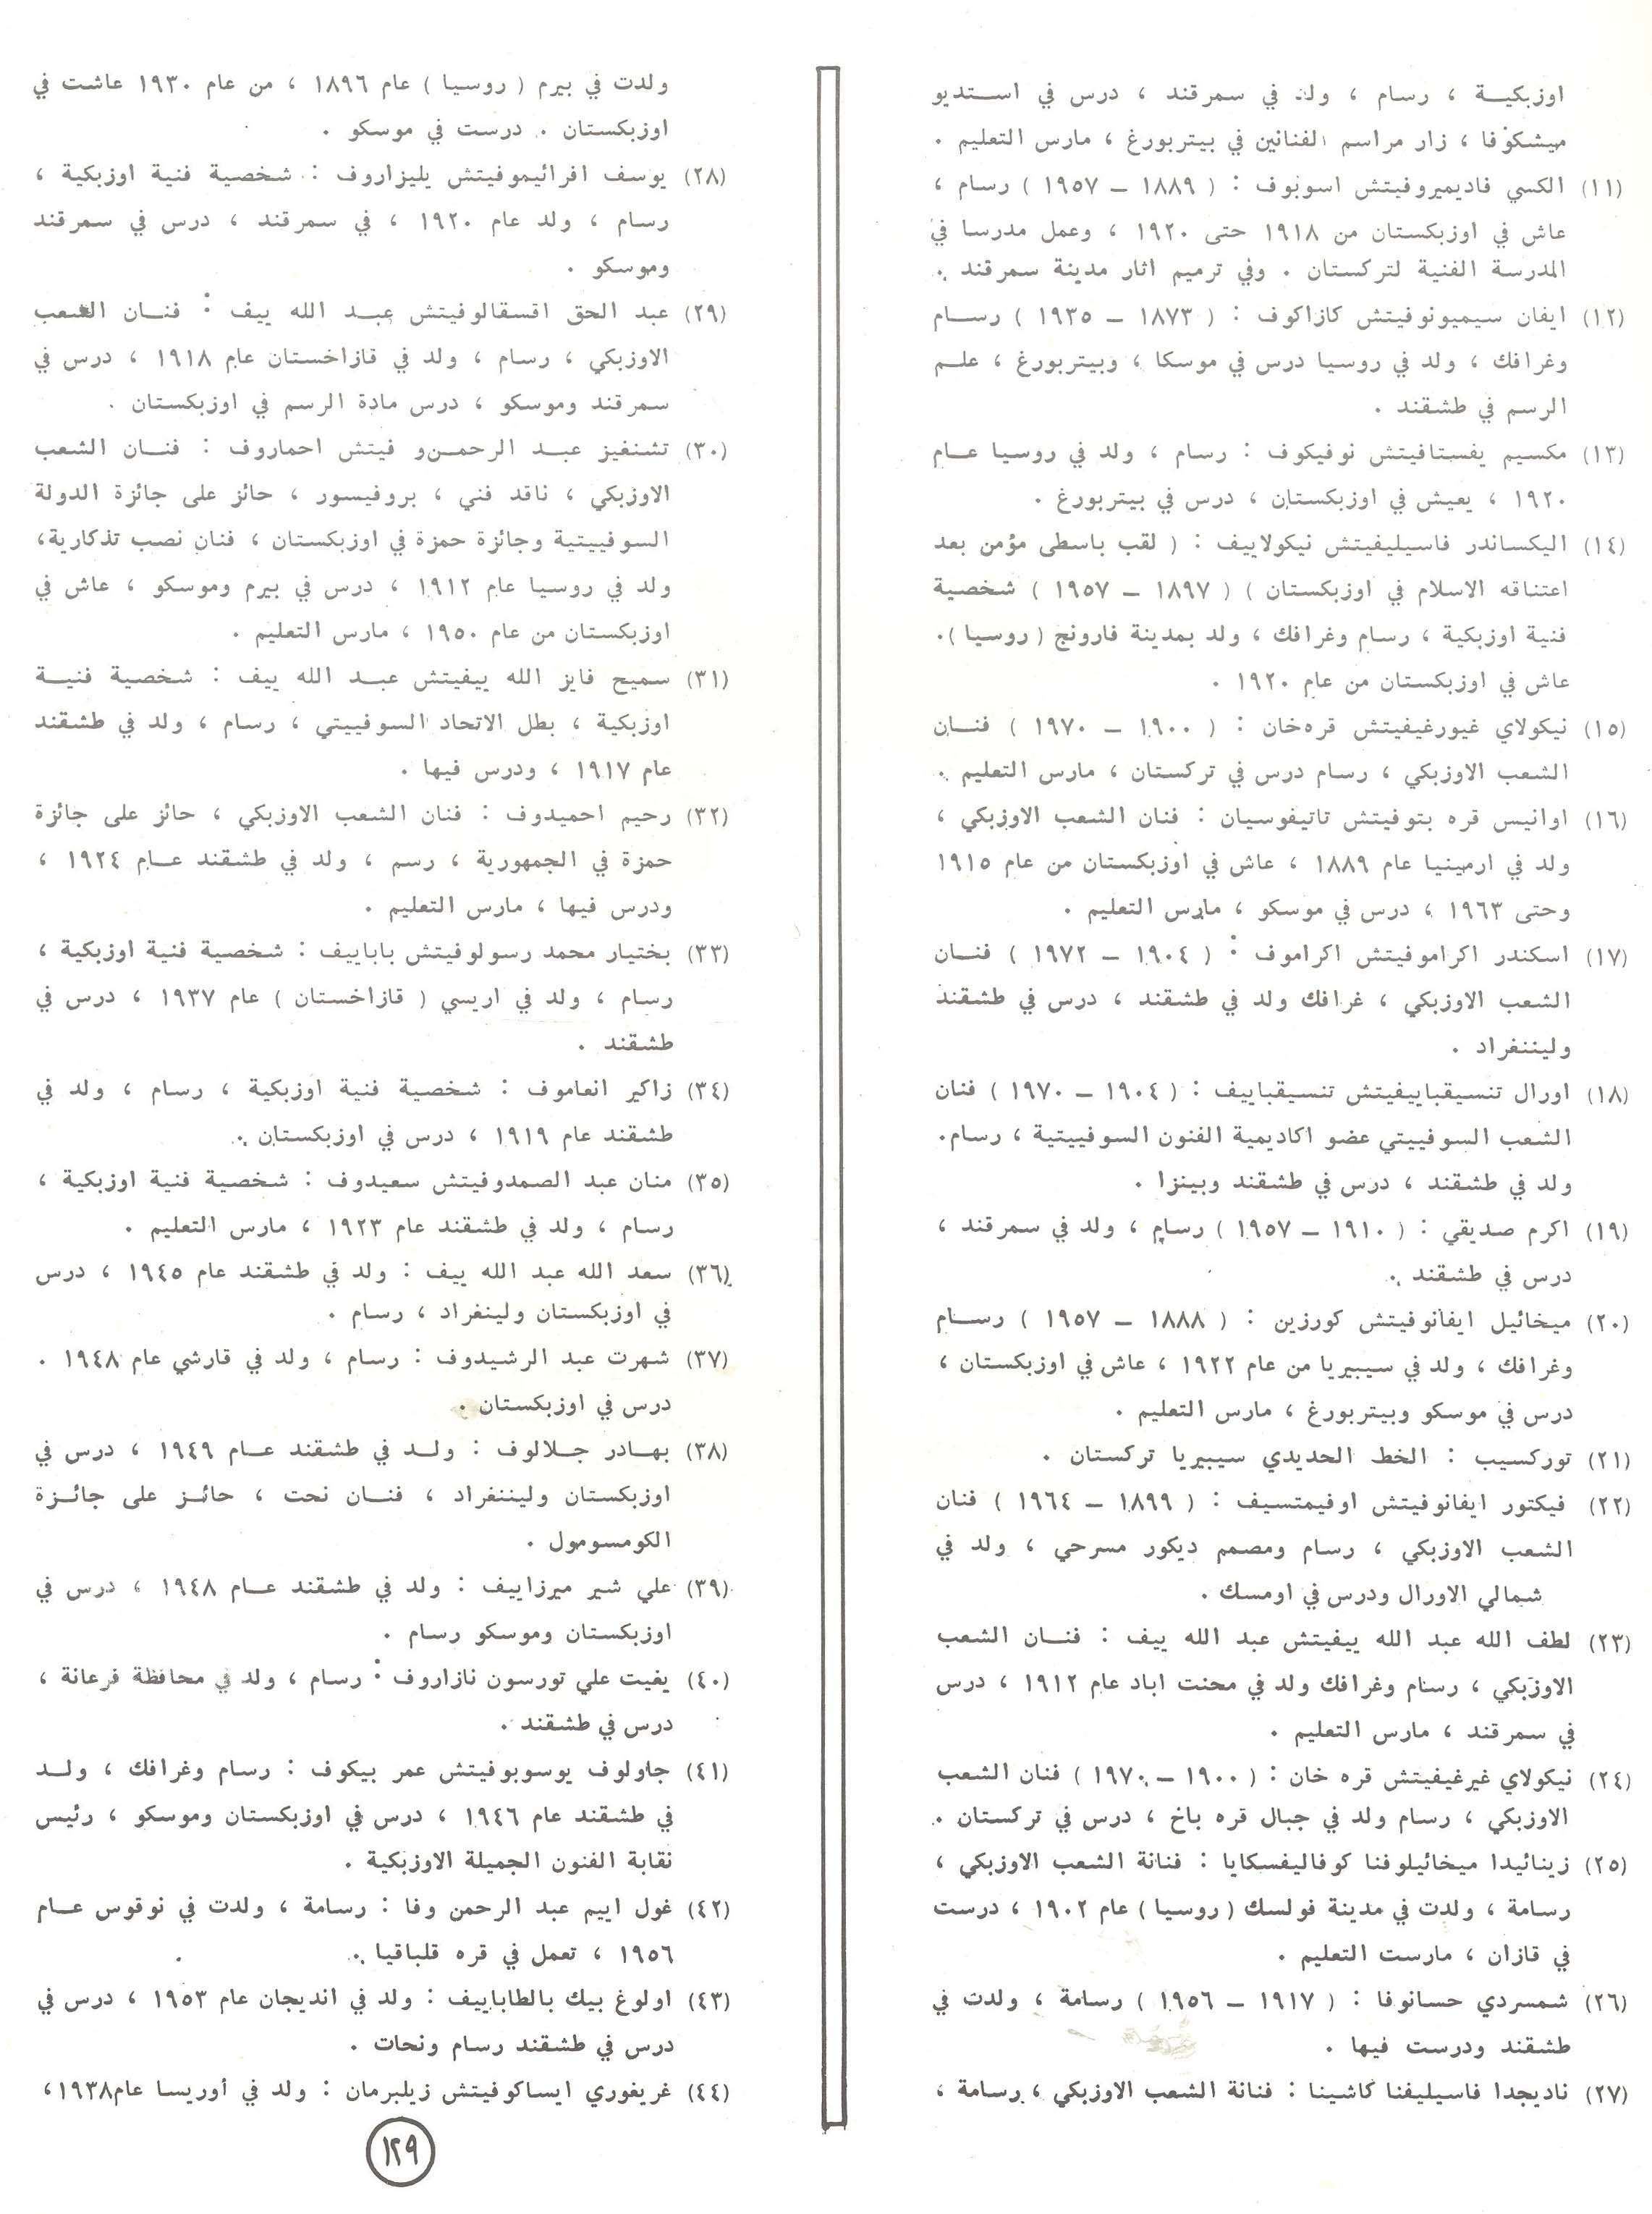 اوزبكيـة ، رسام ، ولد في سمرقند ، درس في استديو
ميشكوفا ، زار مراسم الفنانين في بيتربورغ ، مارس التعليم .
(١١) الكسي فاديميروفيتش اسوبوف : ( ١٨٨٩ – ١٩٥٧ ) رسام ،
عاش في اوزبكستان من ١٩١٨ حتى ١٩٢٠ ، وعمل مدرسا في
المدرسة الفنية لتركستان . وفي ترميم اثار مدينة سمرقند .
(١٢) ايفان سيميونوفيتش كازاكوف : ( ١٨٧٣ – ١٩٣٥ ) رسام
وغرافك ، ولد في روسيا درس في موسكا ، وبيتربورغ ، علم
الرسم في طشقند .
(١٣) مكسيم يفستافيتش نوفيكوف : رسام ، ولد في روسيا عام
١٩٢٠ ، يعيش في اوزبكستان ، درس في بيتربورغ .
(١٤) اليكساندر فاسيليفيتش نيكولاييف : ( لقب باسطى مؤمن بعد
اعتناقه الاسلام في اوزبكستان ) ( ١٨٩٧ – ١٩٥٧ ) شخصية
فنية اوزبكية ، رسام وغرافك ، ولد بمدينة فارونج ( روسيا ) .
عاش في اوزبكستان من عام ١٩٢٠ .
(١٥) نيكولاي غيورغيفيتش قره‌خان : ( ١٩٠٠ – ١٩٧٠ ) فنان
الشعب الاوزبكي ، رسام درس في تركستان ، مارس التعليم .
(١٦) اوانيس قره بتوفيتش تاتيفوسيان : فنان الشعب الاوزبكي ،
ولد في ارمينيا عام ١٨٨٩ ، عاش في اوزبكستان من عام ١٩١٥
وحتى ١٩٦٣ ، درس في موسكو ، مارس التعليم .
(١٧) اسكندر اكراموفيتش اكراموف : ( ١٩٠٤ – ١٩٧٢ ) فنان
الشعب الاوزبكي ، غرافك ولد في طشقند ، درس في طشقند
ولييننغراد .
(١٨) اورال تنسيقباييفيتش تنسيقباييف : ( ١٩٠٤ – ١٩٧٠ ) فنان
الشعب السوفييتي عضو اكاديمية الفنون السوفييتية ، رسام .
ولد في طشقند ، درس في طشقند وبينزا .
(١٩) اكرم صديقي : ( ١٩١٠ – ١٩٥٧ ) رسام ، ولد في سمرقند ،
درس في طشقند .
(٢٠) ميخائيل ايفانوفيتش كورزين : ( ١٨٨٨ – ١٩٥٧ ) رسام
وغرافك ، ولد في سيبيريا من عام ١٩٢٢ ، عاش في اوزبكستان ،
درس في موسكو وبيتربورغ ، مارس التعليم .
(٢١) توركسيب : الخط الحديدي سيبيريا تركستان .
(٢٢) فيكتور ايفانوفيتش اوفيمتسيف : ( ١٨٩٩ – ١٩٦٤ ) فنان
الشعب الاوزبكي ، رسام ومصمم ديكور مسرحي ، ولد في
شمالي الاورال ودرس في اومسك .
(٢٣) لطف الله عبد الله ييفيتش عبد الله ييف : فنان الشعب
الاوزبكي ، رسام وغرافك ولد في محنت اباد عام ١٩١٢ ، درس
في سمرقند ، مارس التعليم .
(٢٤) نيكولاي غيرغيفيتش قره خان : ( ١٩٠٠ – ١٩٧٠ ) فنان الشعب
الاوزبكي ، رسام ولد في جبال قره باخ ، درس في تركستان .
(٢٥) زينائيدا ميخائيلوفنا كوفاليفسكايا : فنانة الشعب الاوزبكي ،
رسامة ، ولدت في مدينة فولسك ( روسيا ) عام ١٩٠٢ ، درست
في قازان ، مارست التعليم .
(٢٦) شمسردي حسانوفا : ( ١٩١٧ – ١٩٥٦ ) رسامة ، ولدت في
طشقند ودرست فيها .
(٢٧) ناديجدا فاسيليفنا كاشينا : فنانة الشعب الاوزبكي ، رسامة ،
ولدت في بيرم ( روسيا ) عام ١٨٩٦ ، من عام ١٩٣٠ عاشت في
اوزبكستان . درست في موسكو .
(٢٨) يوسف افرائيموفيتش يليزاروف : شخصية فنية اوزبكية ،
رسام ، ولد عام ١٩٢٠ ، في سمرقند ، درس في سمرقند
وموسكو .
(٢٩) عبد الحق اقسقالوفيتش عبد الله ييف : فنان الشعب
الاوزبكي ، رسام ، ولد في قازاخستان عام ١٩١٨ ، درس في
سمرقند وموسكو ، درس مادة الرسم في اوزبكستان .
(٣٠) تشنغيز عبد الرحمن‌و فيتش احماروف : فنان الشعب
الاوزبكي ، ناقد فني ، بروفيسور ، حائز على جائزة الدولة
السوفييتية وجائزة حمزة في اوزبكستان ، فنان نصب تذكارية ،
ولد في روسيا عام ١٩١٢ ، درس في بيرم وموسكو ، عاش في
اوزبكستان من عام ١٩٥٠ ، مارس التعليم .
(٣١) سميح فايز الله ييفيتش عبد الله ييف : شخصية فنية
اوزبكية ، بطل الاتحاد السوفييتي ، رسام ، ولد في طشقند
عام ١٩١٧ ، ودرس فيها .
(٣٢) رحيم احميدوف : فنان الشعب الاوزبكي ، حائز على جائزة
حمزة في الجمهورية ، رسم ، ولد في طشقند عام ١٩٢٤ ،
ودرس فيها ، مارس التعليم .
(٣٣) بختيار محمد رسولوفيتش باباييف : شخصية فنية اوزبكية ،
رسام ، ولد في اريسي ( قازاخستان ) عام ١٩٣٧ ، درس في
طشقند .
(٣٤) زاكير انعاموف : شخصية فنية اوزبكية ، رسام ، ولد في
طشقند عام ١٩١٩ ، درس في اوزبكستان .
(٣٥) منان عبد الصمدوفيتش سعيدوف : شخصية فنية اوزبكية ،
رسام ، ولد في طشقند عام ١٩٢٣ ، مارس التعليم .
(٣٦) سعد الله عبد الله ييف : ولد في طشقند عام ١٩٤٥ ، درس
في اوزبكستان ولينغراد ، رسام .
(٣٧) شهرت عبد الرشيدوف : رسام ، ولد في قارشي عام ١٩٤٨ .
درس في اوزبكستان .
(٣٨) بهادر جلالوف : ولد في طشقند عام ١٩٤٩ ، درس في
اوزبكستان وليننغراد ، فنان نحت ، حائز على جائزة
الكومسومول .
(٣٩) علي شير ميرزاييف : ولد في طشقند عام ١٩٤٨ ، درس في
اوزبكستان وموسكو رسام .
(٤٠) يغيت علي تورسون نازاروف : رسام ، ولد في محافظة فرعانة ،
درس في طشقند .
(٤١) جاولوف يوسوبوفيتش عمر بيكوف : رسام وغرافك ، ولد
في طشقند عام ١٩٤٦ ، درس في اوزبكستان وموسكو ، رئيس
نقابة الفنون الجميلة الاوزبكية .
(٤٢) غول اييم عبد الرحمن وفا : رسامة ، ولدت في نوقوس عام
١٩٥٦ ، تعمل في قره قلباقيا .
(٤٣) اولوغ بيك بالطاباييف : ولد في انديجان عام ١٩٥٣ ، درس في
درس في طشقند رسام ونحات .
(٤٤) غريغوري ايساكوفيتش زيلبرمان : ولد في أوريسا عام١٩٣٨ ،
١٢٩